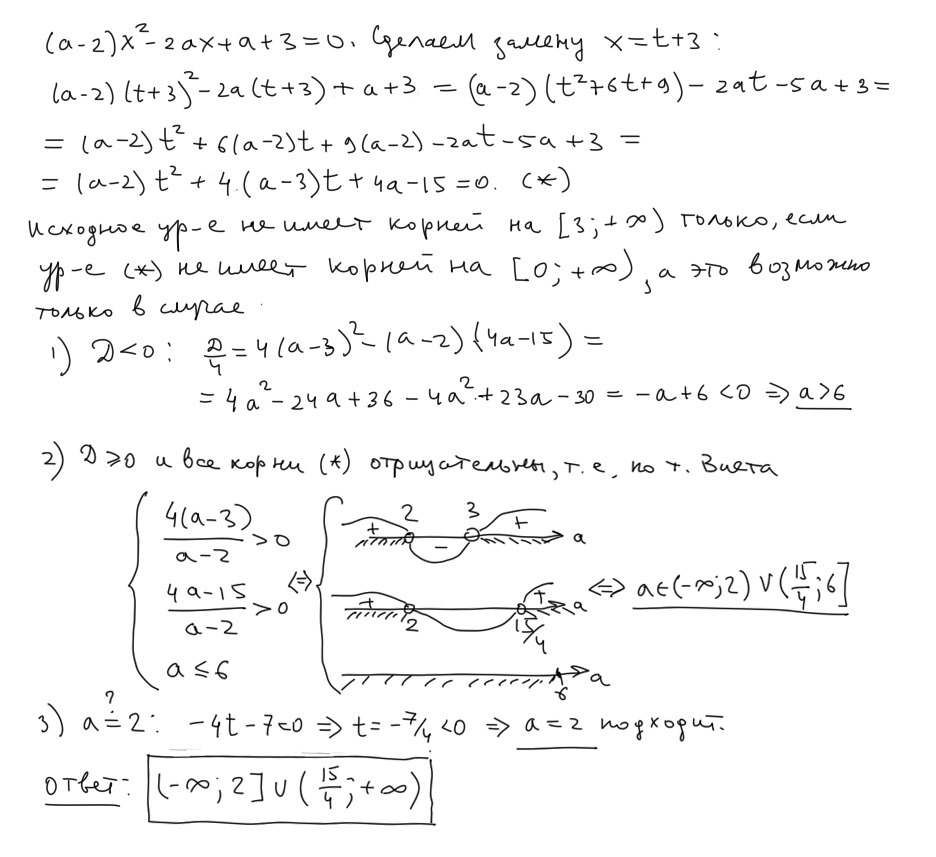 (a-2)x²-2ax+a+3=0. Сделаем замену x=t+3:
(a-2)(t+3)²-2a(t+3)+a+3 = (a-2)(t²+6t+9)-2at-5a+3=
= (a-2)t²+6(a-2)t+9(a-2)-2at-5a+3 =
= (a-2)t²+4·(a-3)t+4a-15=0. (*)
Исходное ур-е не имеет корней на [3;+∞) только, если
ур-е (*) не имеет корней на [0;+∞), а это возможно
только в случае
1) D<0: D/4=4(a-3)²-(a-2)(4a-15)=
=4a²-24a+36-4a²+23a-30=-a+6<0 ⇒ a>6
2) D≥0 и все корни (*) отрицательны, т.е. по т. Виета
{ 4(a-3)/(a-2)>0 ⇔ { + 2 - 3 + a
4a-15/(a-2)>0 + 2 15/4 + a ⇔ a∈(-∞;2)∪(15/4;6]
a≤6 6 a
3) a ?= 2: -4t-7=0 ⇒ t=-7/4<0 ⇒ a=2 подходит.
Ответ: (-∞;2]∪(15/4;+∞)